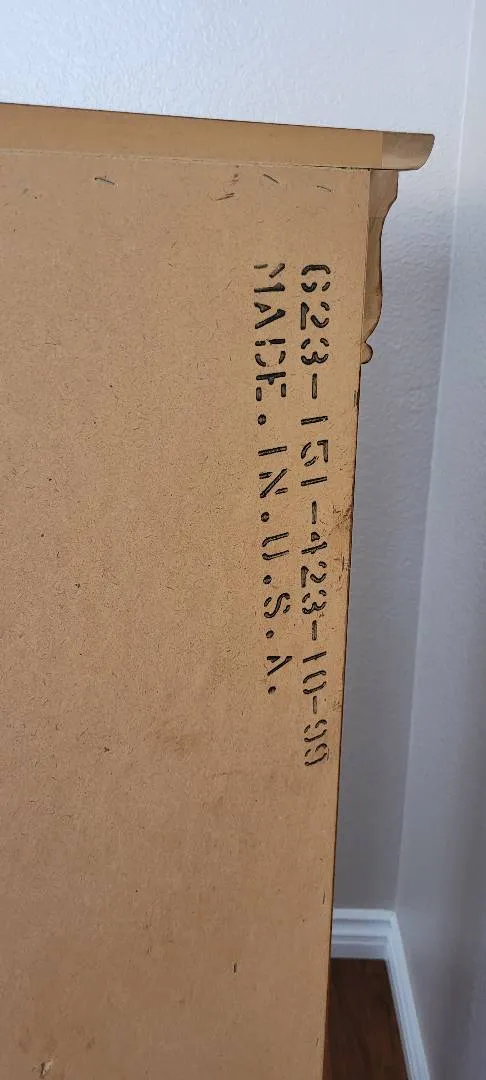 623-151-423-10-99
MADE.IN.U.S.A.